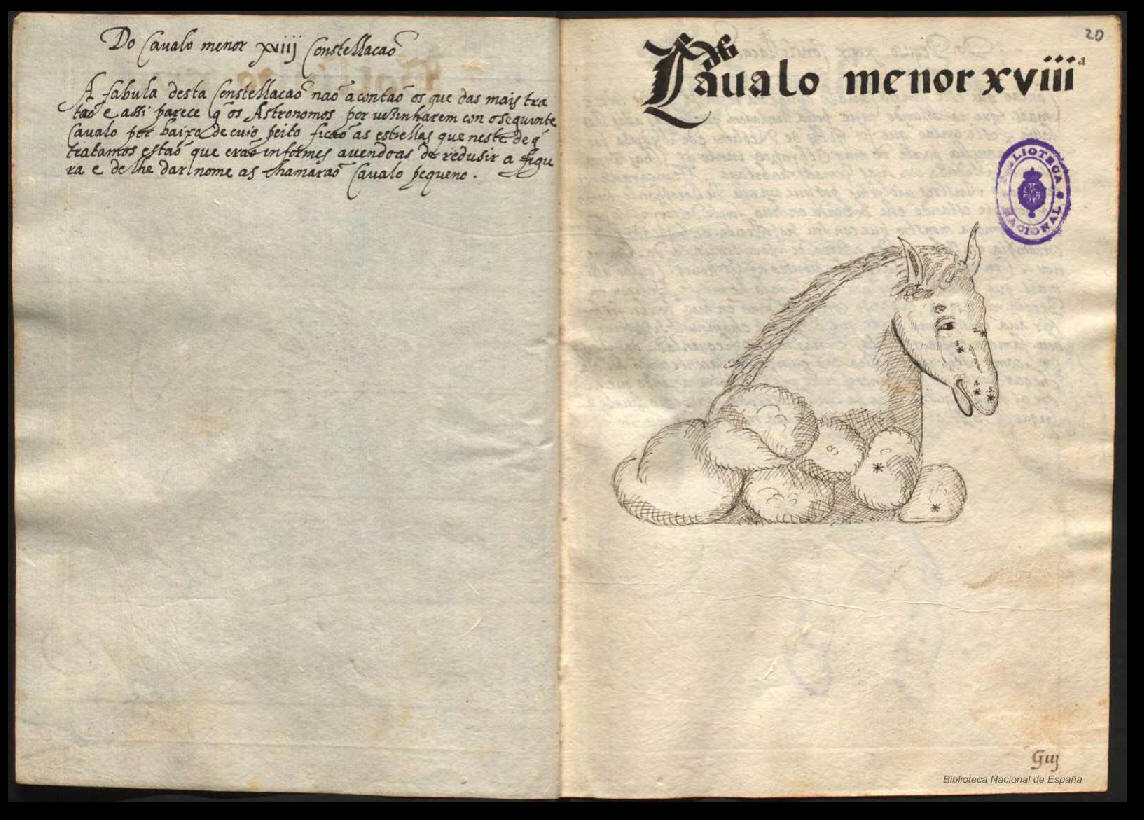 Do Cavalo menor xviiij Constellacaõ
A fabula desta Constellacaõ naõ a contaõ os que das mais tra
taõ e assi parece q̃ os Astronomos por visinharem con o seguinte
Cavalo por baixo de cuio peito ficaõ as estrellas que neste de q̃
tratamos estaõ que eraõ informes avendoas de redusir a figu
ra e de lhe dar nome as chamaraõ Cavalo pequeno.
20
Do
Caualo menor xviiiª
BIBLIOTECA NACIONAL
Guj
Biblioteca Nacional de España